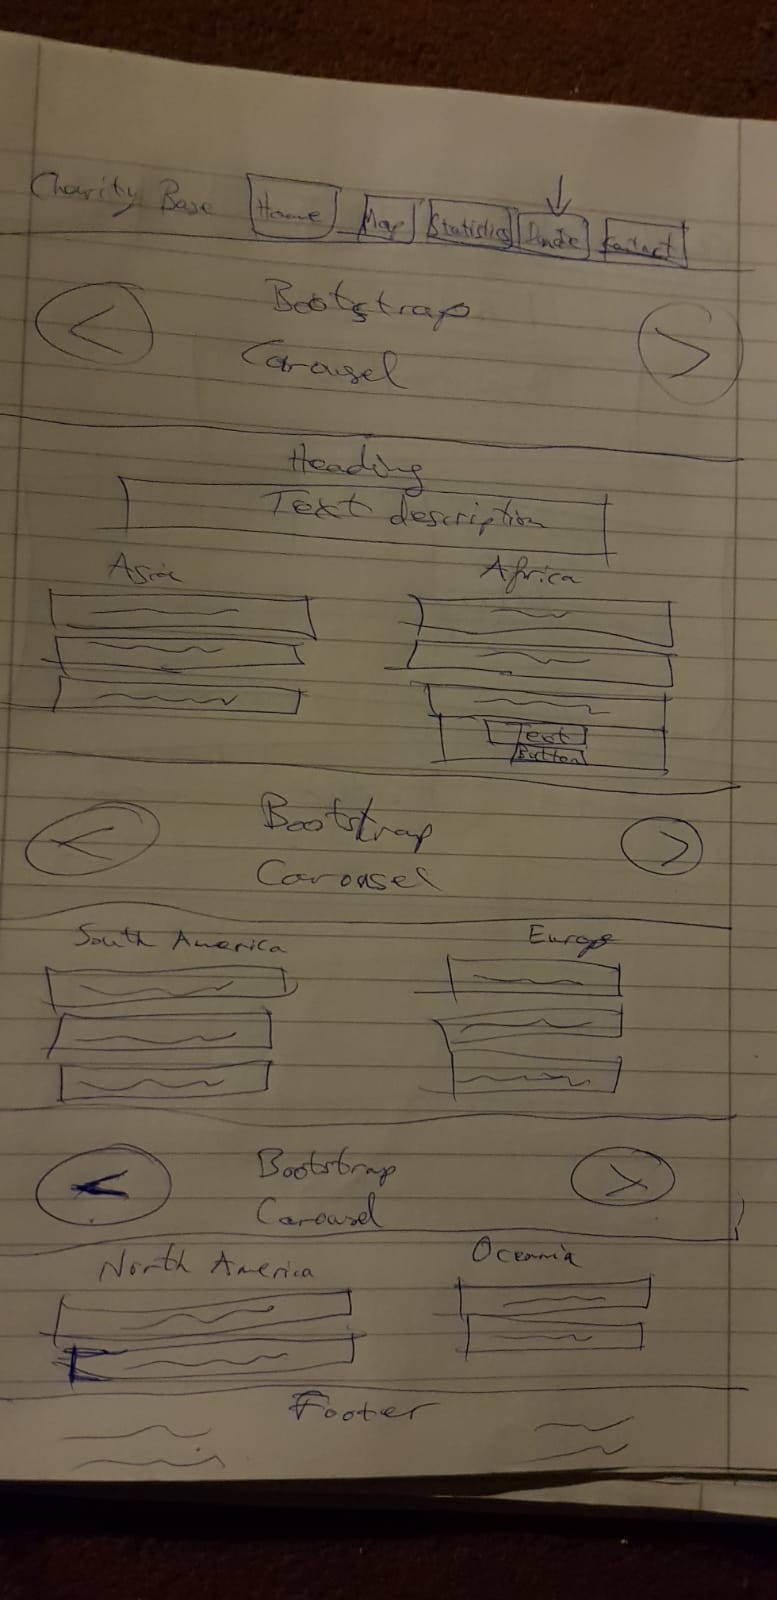 Charity Base Home Map Statistics Donate Contact
Bootstrap
Carousel
Heading
Text description
Asia Africa
Text
Button
Bootstrap
Carousel
South America Europe
Bootstrap
Carousel
North America Oceania
Footer